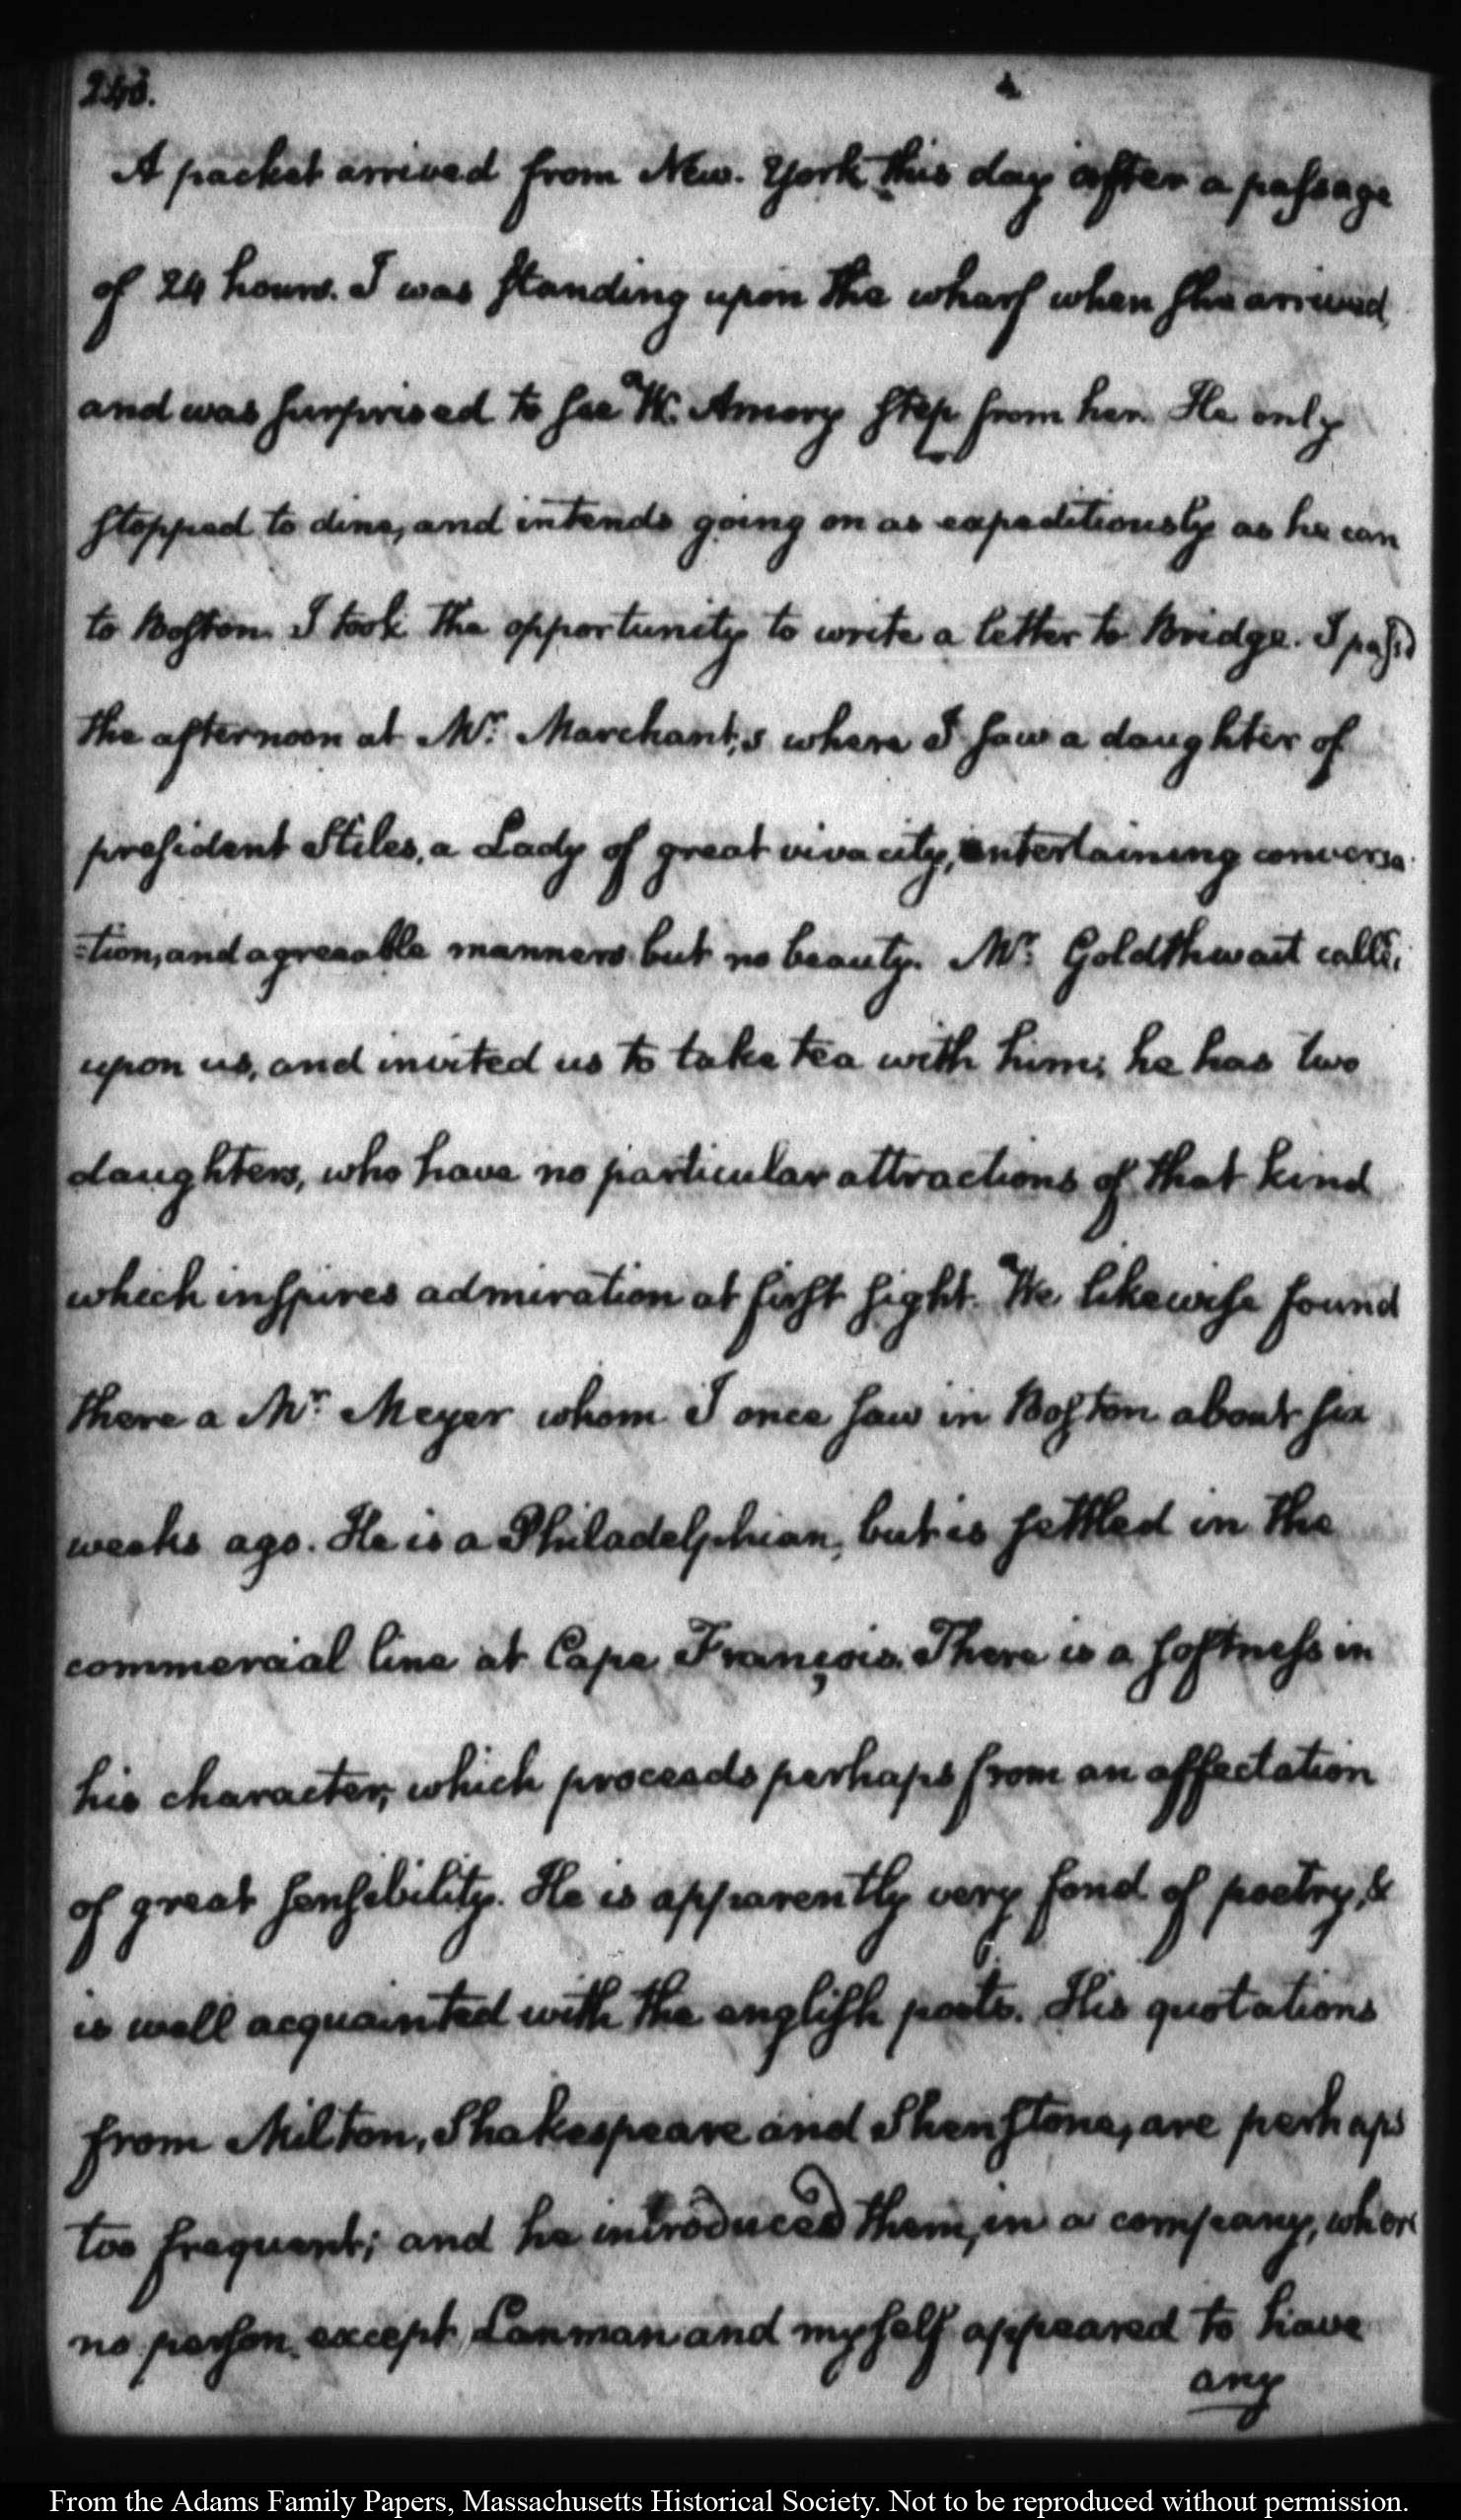 248.
A packet arrived from New-York this day after a passage
of 24 hours. I was standing upon the wharf when she arrived,
and was surprised to see W. Amory step from her. He only
stopped to dine, and intends going on as expeditiously as he can
to Boston. I took the opportunity to write a letter to Bridge. I pass'd
the afternoon at Mr. Marchant's where I saw a daughter of
president Stiles, a Lady of great vivacity, entertaining conversa-
-tion, and agreeable manners but no beauty. Mr. Goldthwait call'd
upon us, and invited us to take tea with him; he has two
daughters, who have no particular attractions of that kind
which inspires admiration at first sight. We likewise found
there a Mr. Meyer whom I once saw in Boston about six
weeks ago. He is a Philadelphian, but is settled in the
commercial line at Cape François. There is a softness in
his character, which proceeds perhaps from an affectation
of great sensibility. He is apparently very fond of poetry, &
is well acquainted with the english poets. His quotations
from Milton, Shakespeare and Shenstone, are perhaps
too frequent; and he introduced them, in a company, where
no person except Lanman and myself appeared to have
any
From the Adams Family Papers, Massachusetts Historical Society. Not to be reproduced without permission.